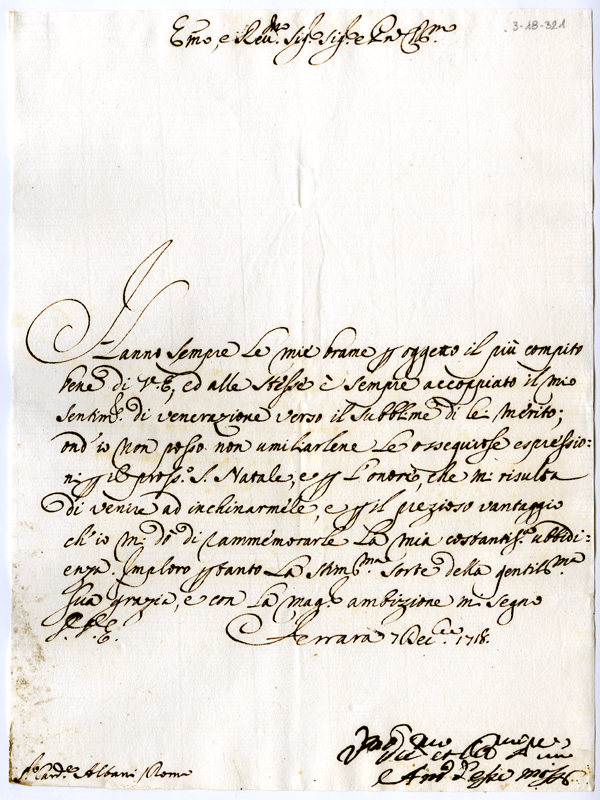 3-18-321
Emo, e Reu.mo Sig.r Sig.r e Pne Coll.mo
Hanno sempre le mie brame p oggetto il più compito
bene di V. E., ed alle stesse è sempre accoppiato il mio
sentim.to di venerazione verso il subblime di lei merito;
ond'io non posso non umiliarlene le ossequiose espressio-
ni p il pross.o S. Natale, e p l'onore, che mi risulta
di venire ad inchinarmele, e p il prezioso vantaggio
ch'io mi dò di rammemorarle la mia costantis.a ubbidi-
enza. Imploro ptanto la stim.ma sorte della gentil.ma
sua grazia, e con la mag.r ambizione mi segno
D. V. E. Ferrara 7 Dec.bre 1718.
S.r Card.le Albani / Roma